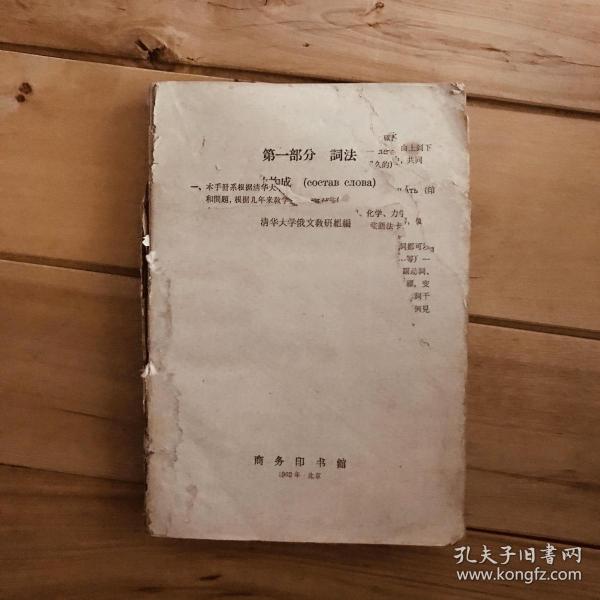 第一部分 詞法
成 (состав слова)
一、本手册系根据清华大
和問題，根据几年来教学
清华大学俄文教研組編
由上到下
久的)
共同
(印
、化学、力学
詞都可以
等) 一
变
詞干
例見
商务印书館
1962年·北京
孔夫子旧书网
www.kongfz.com